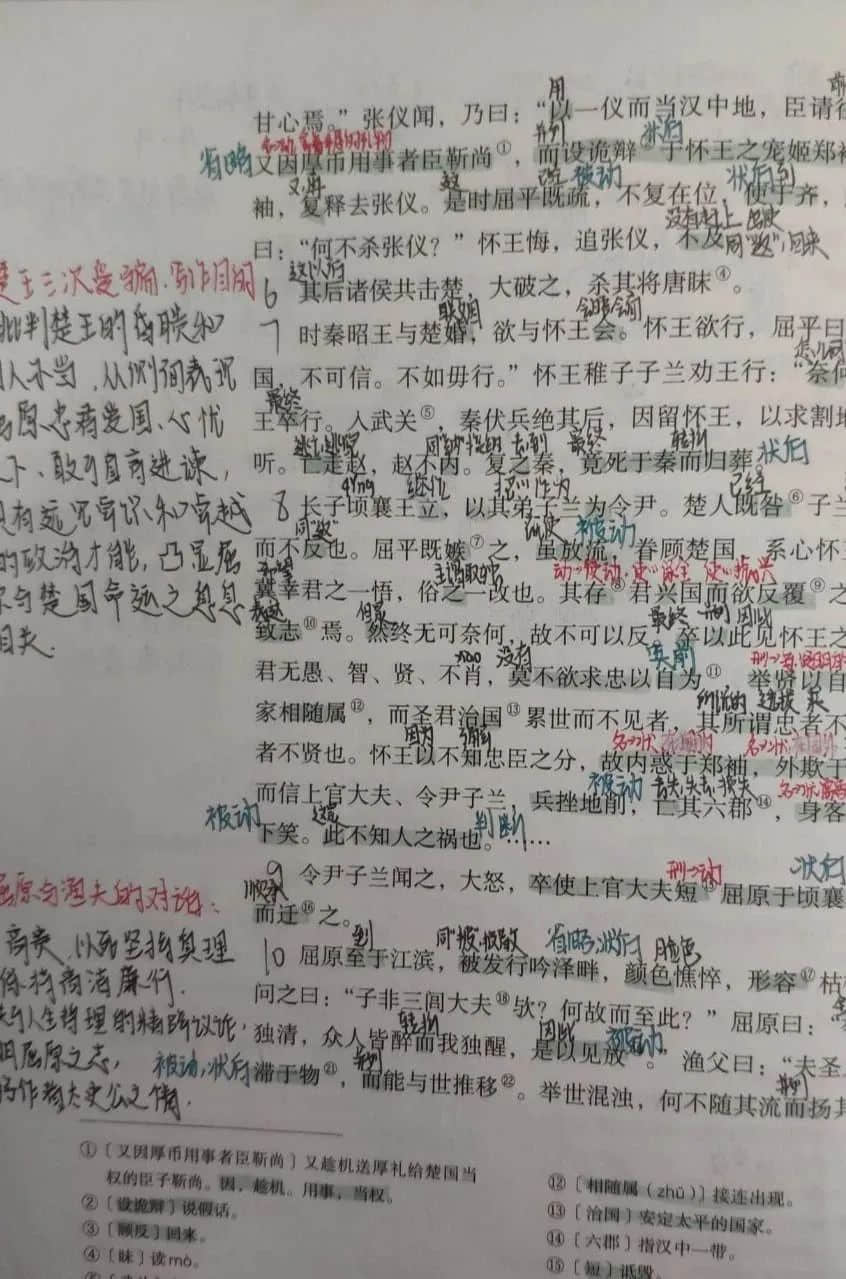 甘心焉。”张仪闻，乃曰：“以一仪而当汉中地，臣请往
用
并列
状后
省略
又因厚币用事者臣靳尚①，而设诡辩②于怀王之宠姬郑袖
又，再
被动
状后 到
袖，复释去张仪。是时屈平既疏，不复在位，使于齐，
没有赶上 出使
曰：“何不杀张仪？”怀王悔，追张仪，不及。
同“返”，回来
这以后
6 其后诸侯共击楚，大破之，杀其将唐眛④。
联姻
会晤会面
7 时秦昭王与楚婚，欲与怀王会。怀王欲行，屈平曰
怎么可
国，不可信。不如毋行。”怀王稚子子兰劝王行：“奈何
最终
王卒行。入武关⑤，秦伏兵绝其后，因留怀王，以求割地
逃亡，逃跑
同“纳”，接纳 去，到 最终
转折
状后
听。亡走赵，赵不内。复之秦，竟死于秦而归葬。
继位
把……作为
已经
8 长子顷襄王立，以其弟子兰为令尹。楚人既咎⑥子兰
被动
而不反也。屈平既嫉⑦之，虽放流，眷顾楚国，系心怀王
希望
主谓取独
冀幸君之一悟，俗之一改也。其存⑧君兴国而欲反覆⑨之
表达
但是
最终
因此
致志⑩焉。然终无可奈何，故不可以反，卒以此见怀王之
没有
宾前
君无愚、智、贤、不肖，莫不欲求忠以自为⑪，举贤以自
所说的
家相随属⑫，而圣君治国⑬累世而不见者，其所谓忠者不
因为
名→状 在国内
名→状 在国外
者不贤也。怀王以不知忠臣之分，故内惑于郑袖，外欺于
被动
丢失，失去，损失
而信上官大夫、令尹子兰，兵挫地削，亡其六郡⑭，身客
被动
这是
判断
下笑。此不知人之祸也。……
形→动
状后
9 令尹子兰闻之，大怒，卒使上官大夫短⑮屈原于顷襄
顺承
而迁⑯之。
到
同“披”，披散
省略，状后
脸色
10 屈原至于江滨，被发行吟泽畔，颜色憔悴，形容⑰枯
问之曰：“子非三闾大夫⑱欤？何故而至此？”屈原曰：“
转折
因此
被动
独清，众人皆醉而我独醒，是以见放。”渔父曰：“夫圣
被动，状后
并列
并列
滞于物㉑，而能与世推移㉒。举世混浊，何不随其流而扬其
楚王三次受骗，写作目的
批判楚王的昏聩和
用人不当，从侧面表现
屈原忠君爱国、心忧
天下、敢于直言进谏，
具有远见卓识和卓越
的政治才能，凸显屈
原与楚国命运之息息
相关．
屈原与渔父的对话：
高尚，以死坚持真理
保持高洁廉行．
对人生哲理的精辟议论，
明屈原之志，
写作者太史公之情．
①〔又因厚币用事者臣靳尚〕又趁机送厚礼给楚国当
权的臣子靳尚。因，趁机。用事，当权。
②〔设诡辩〕说假话。
③〔顾反〕回来。
④〔眛〕读mò。
⑫〔相随属（zhǔ）〕接连出现。
⑬〔治国〕安定太平的国家。
⑭〔六郡〕指汉中一带。
⑮〔短〕诋毁。